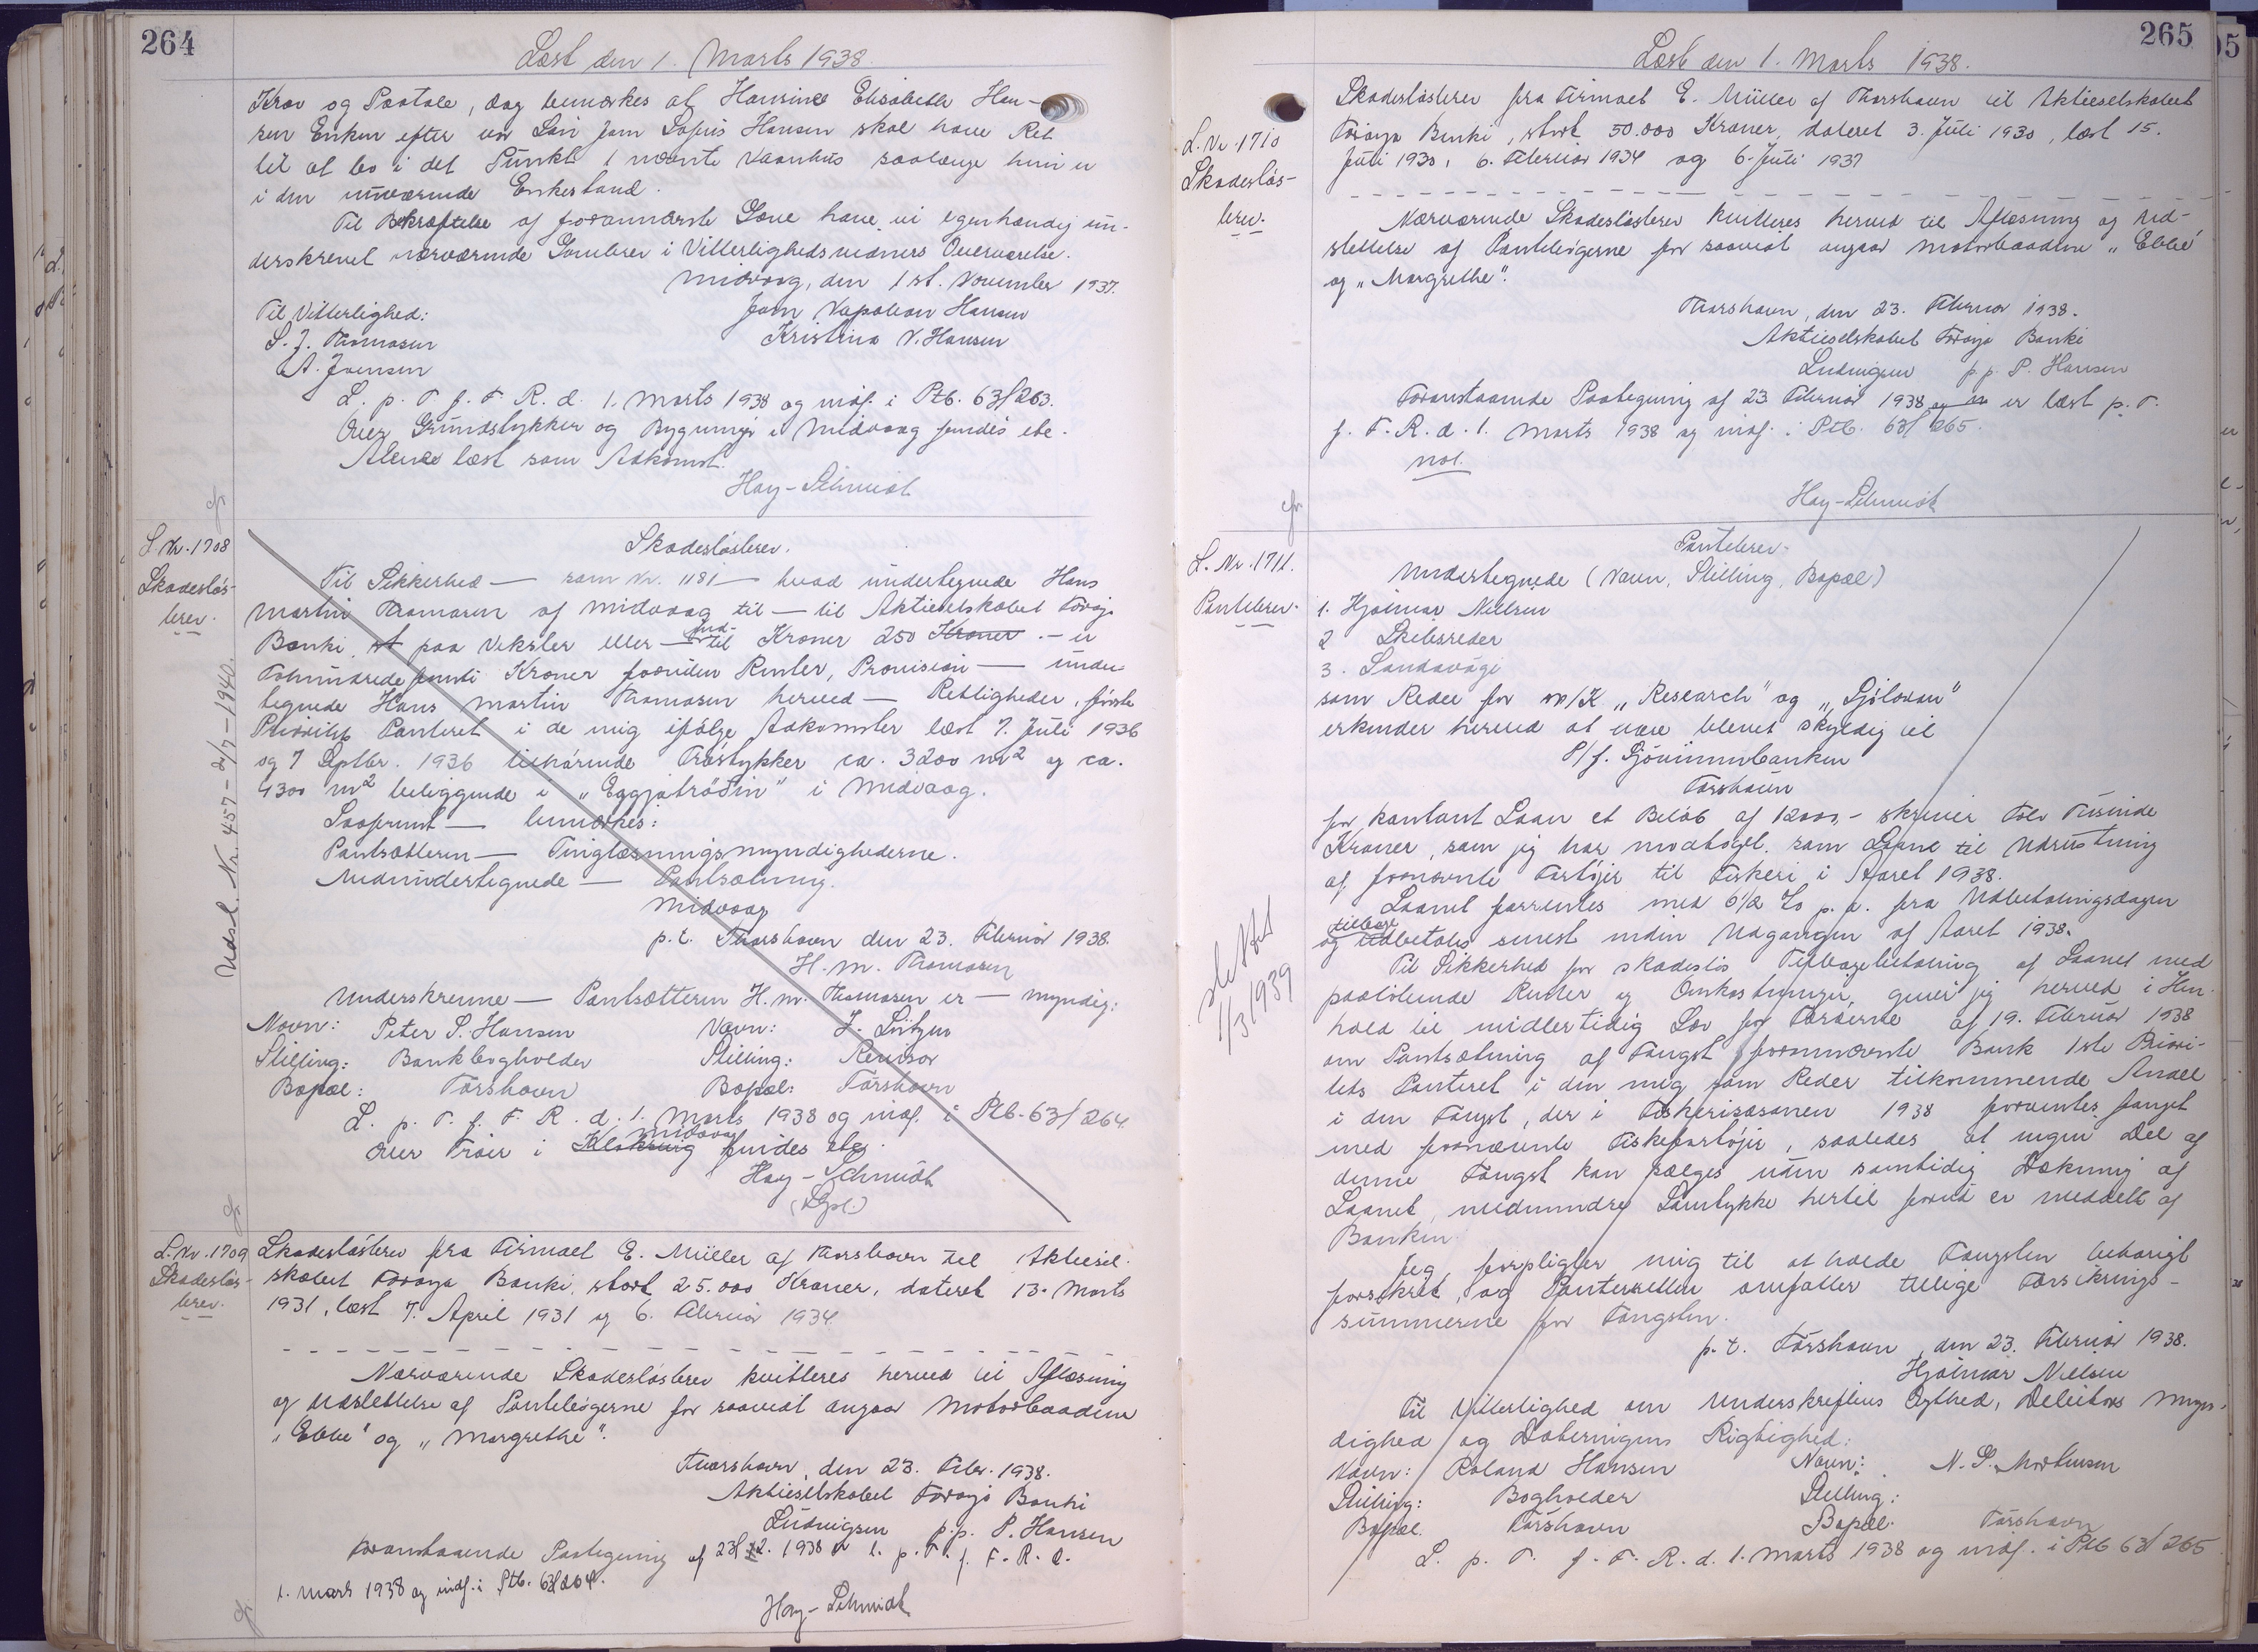 264
Læst den 1. Marts 1938.
Krav og Paatale, dog bemærkes at Hansine Elisabeth Han-
sen Enken efter vor Søn Jom Sofus Hansen skal have Ret
til at bo i det Punkt 1 nævnte Vaanhus saalænge hun er
i den nuværende Enkestand.
Til Bekræftelse af forannævnte Gave have vi egenhændig un-
derskrevet nærværende Gavebrev i Vitterlighedsvidners Overværelse.
Midvaag, den 1 st. November 1937.
Til Vitterlighed:
Joen Napoleon Hansen
S. J. Thomasen
Kristina N. Hansen
A. Joensen
L. p. T. f. F. R. d. 1. Marts 1938 og indf. i Ptb. 63/263.
Over Grundstykker og Bygninger i Midvaag findes ebe.
Alene læst som Adkomst.
Hay-Schmidt
L. Nr. 1708
Skadesløs-
brev.
Udsl. Nr. 457 - 2/7 - 1940.
Skadesløsbrev.
Til Sikkerhed — som Nr. 1181 — hvad undertegnede Hans
Martin Thomasen af Midvaag til — til Aktieselskabet Føroya
Banki, at paa Veksler eller — ind- til Kroner 250 Kroner .- er
Tohundredefemti Kroner foruden Renter, Provision — under-
tegnede Hans Martin Thomasen herved — Rettigheder, første
Prioritets Panteret i de mig ifølge Adkomster læst 7. Juli 1936
og 7 Septbr. 1936 tilhørende Trøstykker ca. 3200 m2 og ca.
4300 m2 beliggende i "Eggjatrøðin" i Midvaag.
Saafremt — bemærkes:
Pantsætteren — Tinglæsningsmyndighederne.
Medundertegnede — Pantsætning.
Midvaag
p.t. Thorshavn den 23. Februar 1938.
H. M. Thomasen
Underskrevne — Pantsætteren H. M. Thomasen er — myndig:
Navn: Peter S. Hansen Navn: J. Lützen
Stilling: Bankbogholder Stilling: Revisor
Bopæl: Tórshavn Bopæl: Tórshavn
L. p. T. f. F. R. d. 1. Marts 1938 og indf. i Ptb. 63/264
Midvaag
over Trøer i findes ebe.
Hay-Schmidt
L. Nr. 1709
Skadesløs-
brev.
Skadesløsbrev fra Firmaet E. Müller af Thorshavn til Aktiesel-
skabet Føroya Banki, stort 25.000 Kroner, dateret 13. Marts
1931, læst 7. April 1931 og 6. Februar 1934
Nærværende Skadesløsbrev kvitteres herved til Aflæsning
og Udslettelse af Pantebøgerne for saavidt angaar Motorbaadene
"Ebbe" og "Margrethe".
Thorshavn, den 23. Febr. 1938.
Aktieselskabet Føroya Banki
Ludvigsen p.p. P. Hansen
Foranstaaende Paategning af 23/2. 1938 er l. p. T. f. F. R. d.
1. Marts 1938 og indf. i Ptb. 63/264.
Hay-Schmidt
265
Læst den 1. Marts 1938.
L. Nr. 1710
Skadesløs-
brev.
Skadesløsbrev fra Firmaet E. Müller af Thorshavn til Aktieselskabet
Føroya Banki, stort 50.000 Kroner, dateret 3. Juli 1930, læst 15.
Juli 1930, 6. Februar 1934 og 6. Juli 1937
Nærværende Skadesløsbrev kvitteres herved til Aflæsning og Ud-
slettelse af Pantebøgerne for saavidt angaar Motorbaadene "Ebbe"
og "Margrethe".
Thorshavn, den 23. Februar 1938.
Aktieselskabet Føroya Banki
Ludvigsen p.p. P. Hansen
Foranstaaende Paategning af 23 Februar 1938 er læst p. T.
f. F. R. d. 1. Marts 1938 og indf. i Ptb. 63/265.
Hay-Schmidt
L. Nr. 1711.
Pantebrev.
slettet
1/3 1939
Pantebrev.
Undertegnede (Navn, Stilling, Bopæl)
1. Hjálmar Nielsen
2 Skibsreder
3. Sandavági
som Reder for M/K "Research" og "Sjólovan"
erkender herved at være blevet skyldig til
P/f. Sjóvinnubankin
Tórshavn
for kontant Laan et Beløb af 12000,- skriver Tolv Tusinde
Kroner, som jeg har modtaget som Laan til Udrustning
af fornævnte Fartøjer til Fiskeri i Aaret 1938.
Laanet forrentes med 6 1/2 % p. a. fra Udbetalingsdagen
tilbage
og udbetales senest inden Udgangen af Aaret 1938.
Til Sikkerhed for skadesløs Tilbagebetaling af Laanet med
paaløbende Renter og Omkostninger, giver jeg herved i Hen-
hold til midlertidig Lov for Færøerne af 19. Februar 1938
om Pantsætning af Fangst forannævnte Bank 1ste Priori-
tets Panteret i den mig som Reder tilkommende Andel
i den Fangst, der i Fiskerisæsonen 1938 forventes fanget
med fornævnte Fiskefartøjer, saaledes at ingen Del af
denne Fangst kan sælges uden samtidig Dækning af
Laanet, medmindre Samtykke hertil forud er meddelt af
Banken.
Jeg forpligter mig til at holde Fangsten behørigt
forsikret, og Panteretten omfatter tillige Forsikrings-
summerne for Fangsten.
p. t. Tórshavn, den 23. Februar 1938.
Hjálmar Nielsen
Til Vitterlighed om Underskriftens Ægthed, Debitors Myn-
dighed og Dateringens Rigtighed:
Navn: Roland Hansen Navn: N. S. Mortensen
Stilling: Bogholder Stilling:
Bopæl. Tórshavn Bopæl. Tórshavn
L. p. T. f. F. R. d. 1. Marts 1938 og indf. i Ptb 63/265